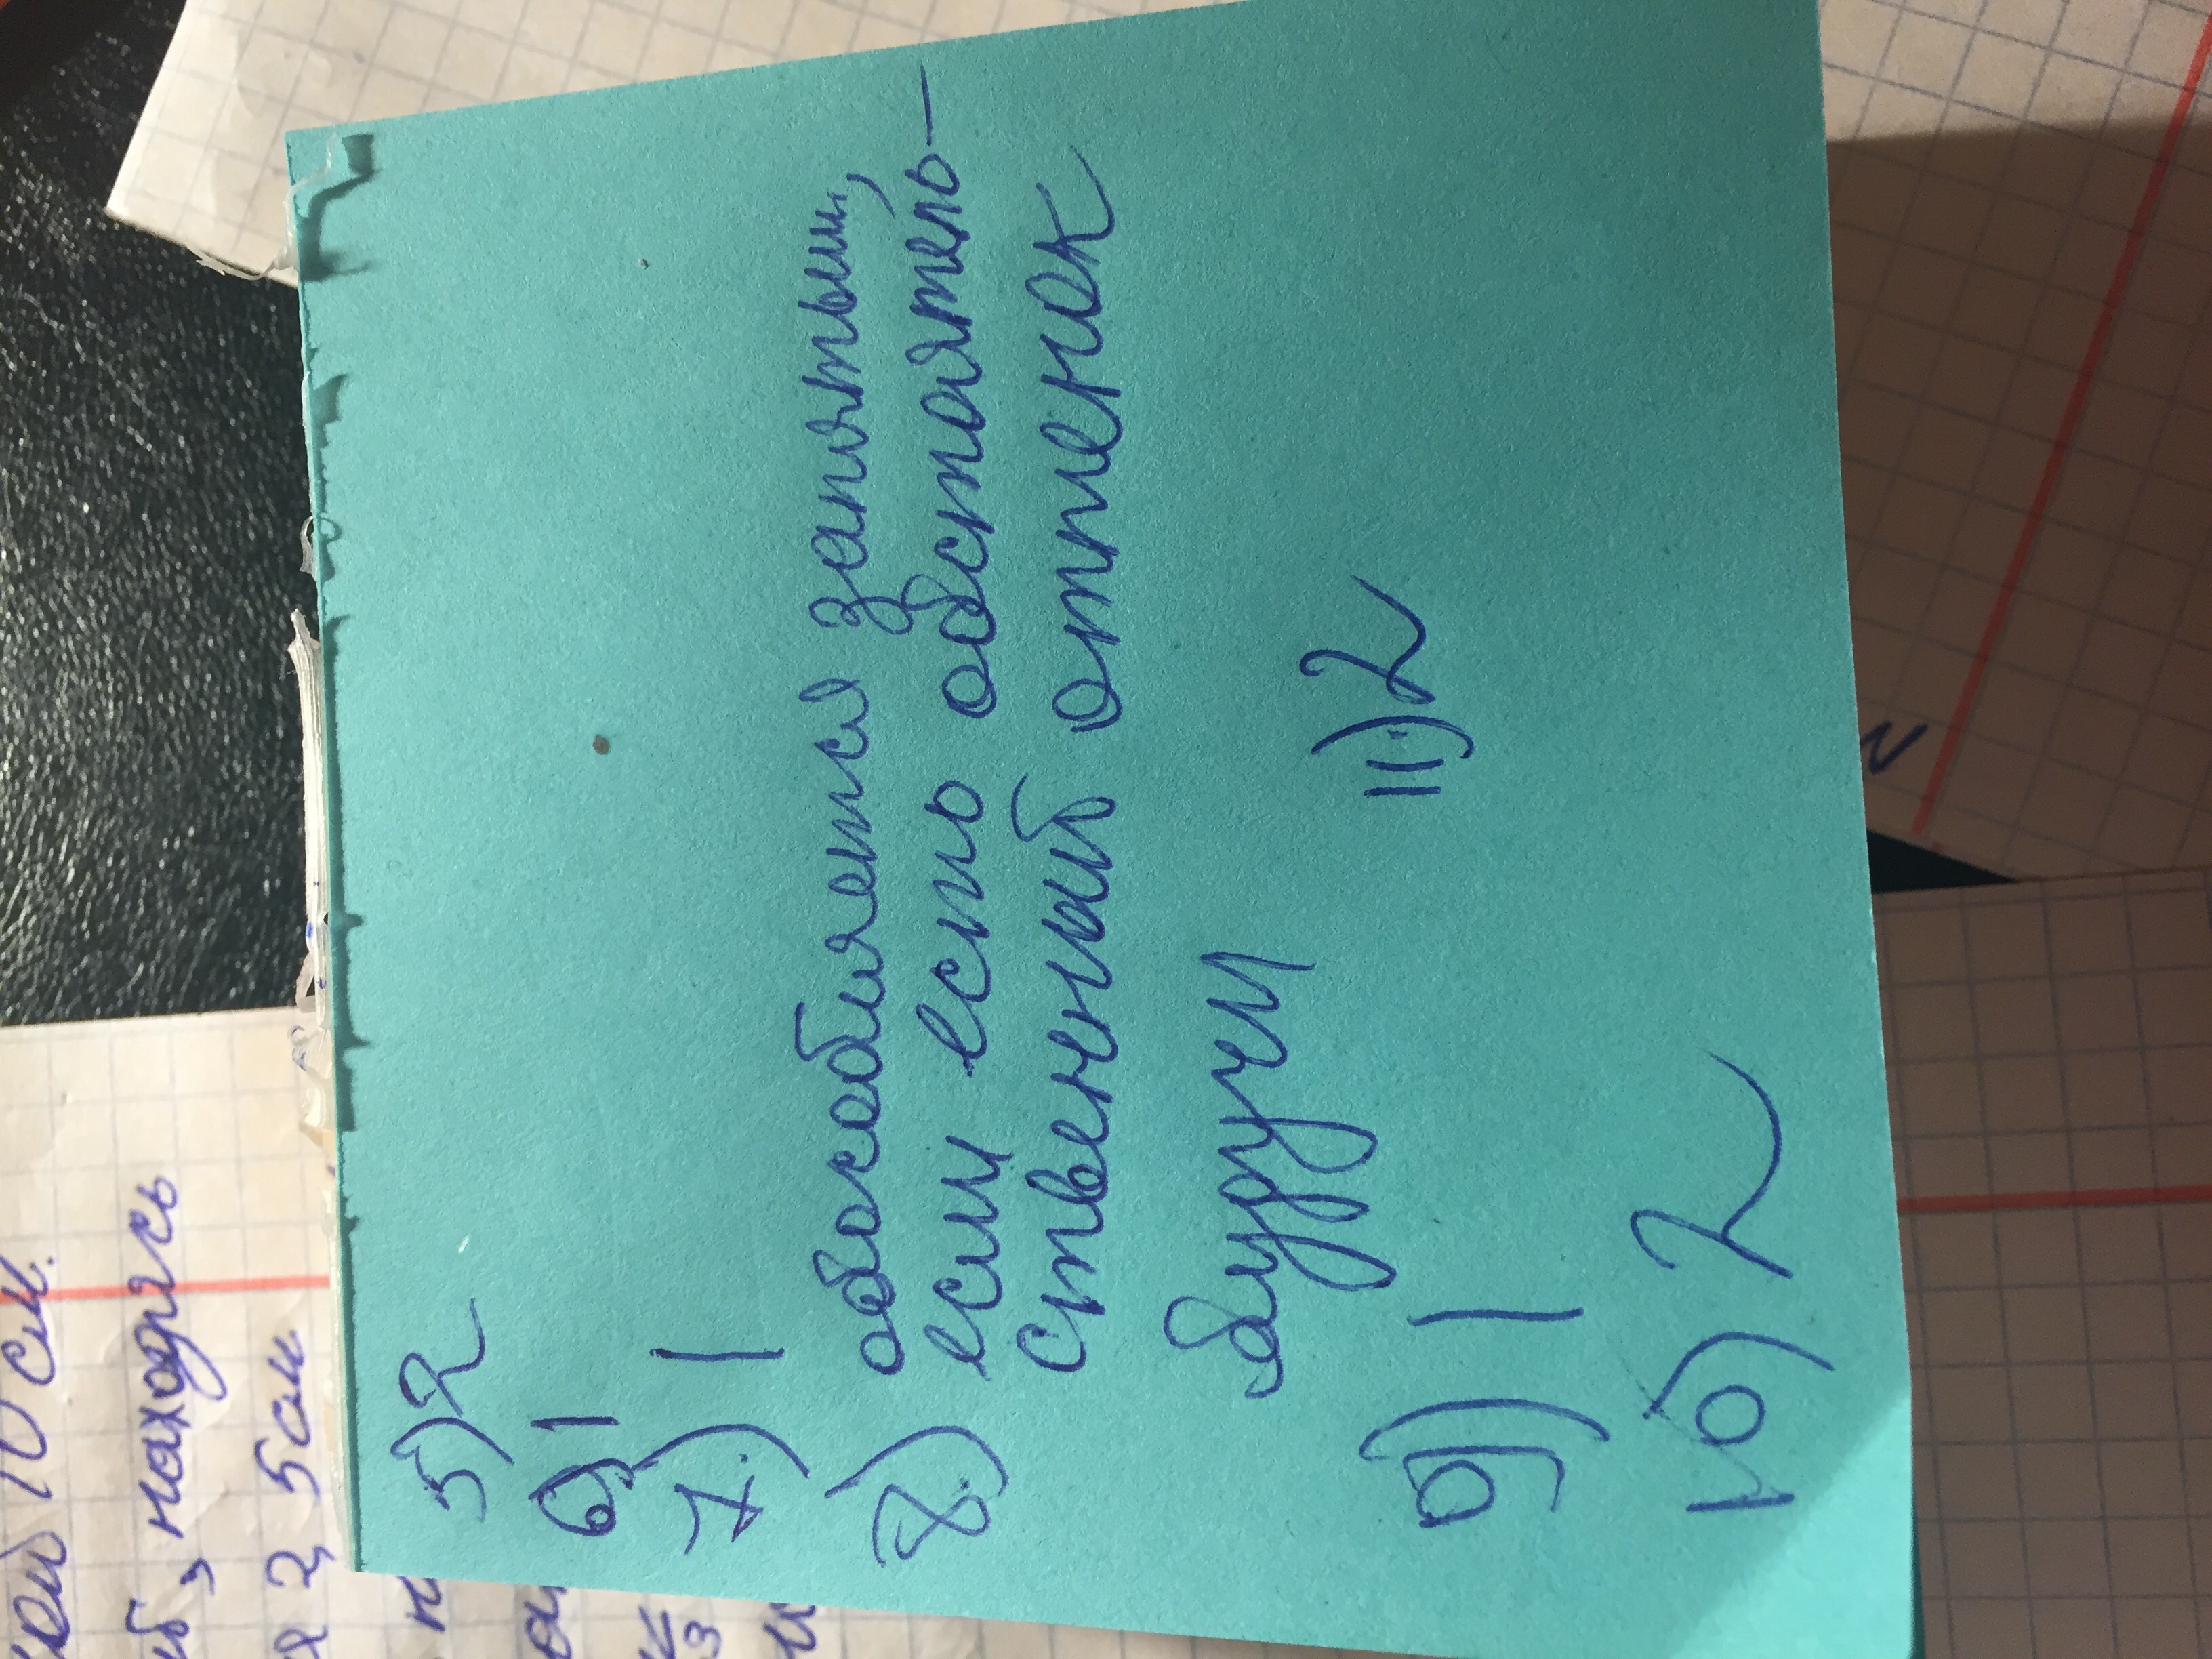 10 см.
, находясь
2,5 см
5) 2
6) 1
7.) 1
8.) обособляется запятыми,
если есть обстоятель-
ственный оттенок
будучи
9) 1
11.) 2
10) 2